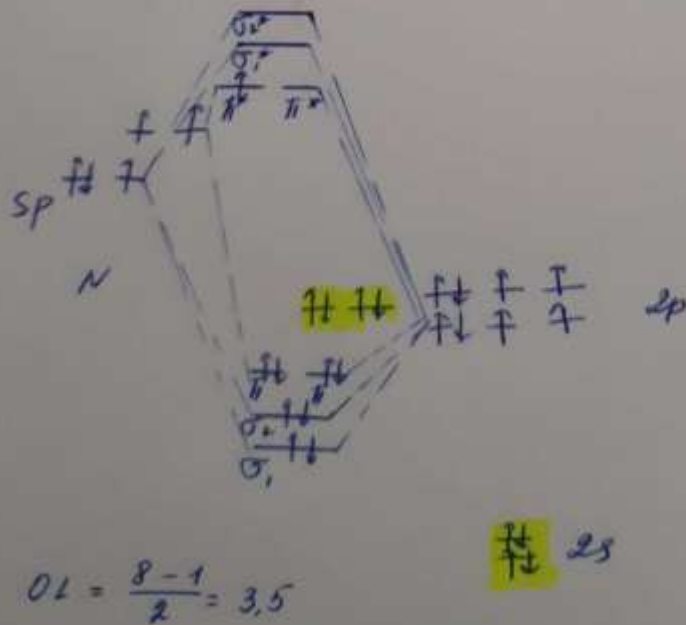 σ₂*
σ₁*
π* π*
Sp
N
2p
π π
σ₂
σ₁
2s
OL = 8 - 1 / 2 = 3,5